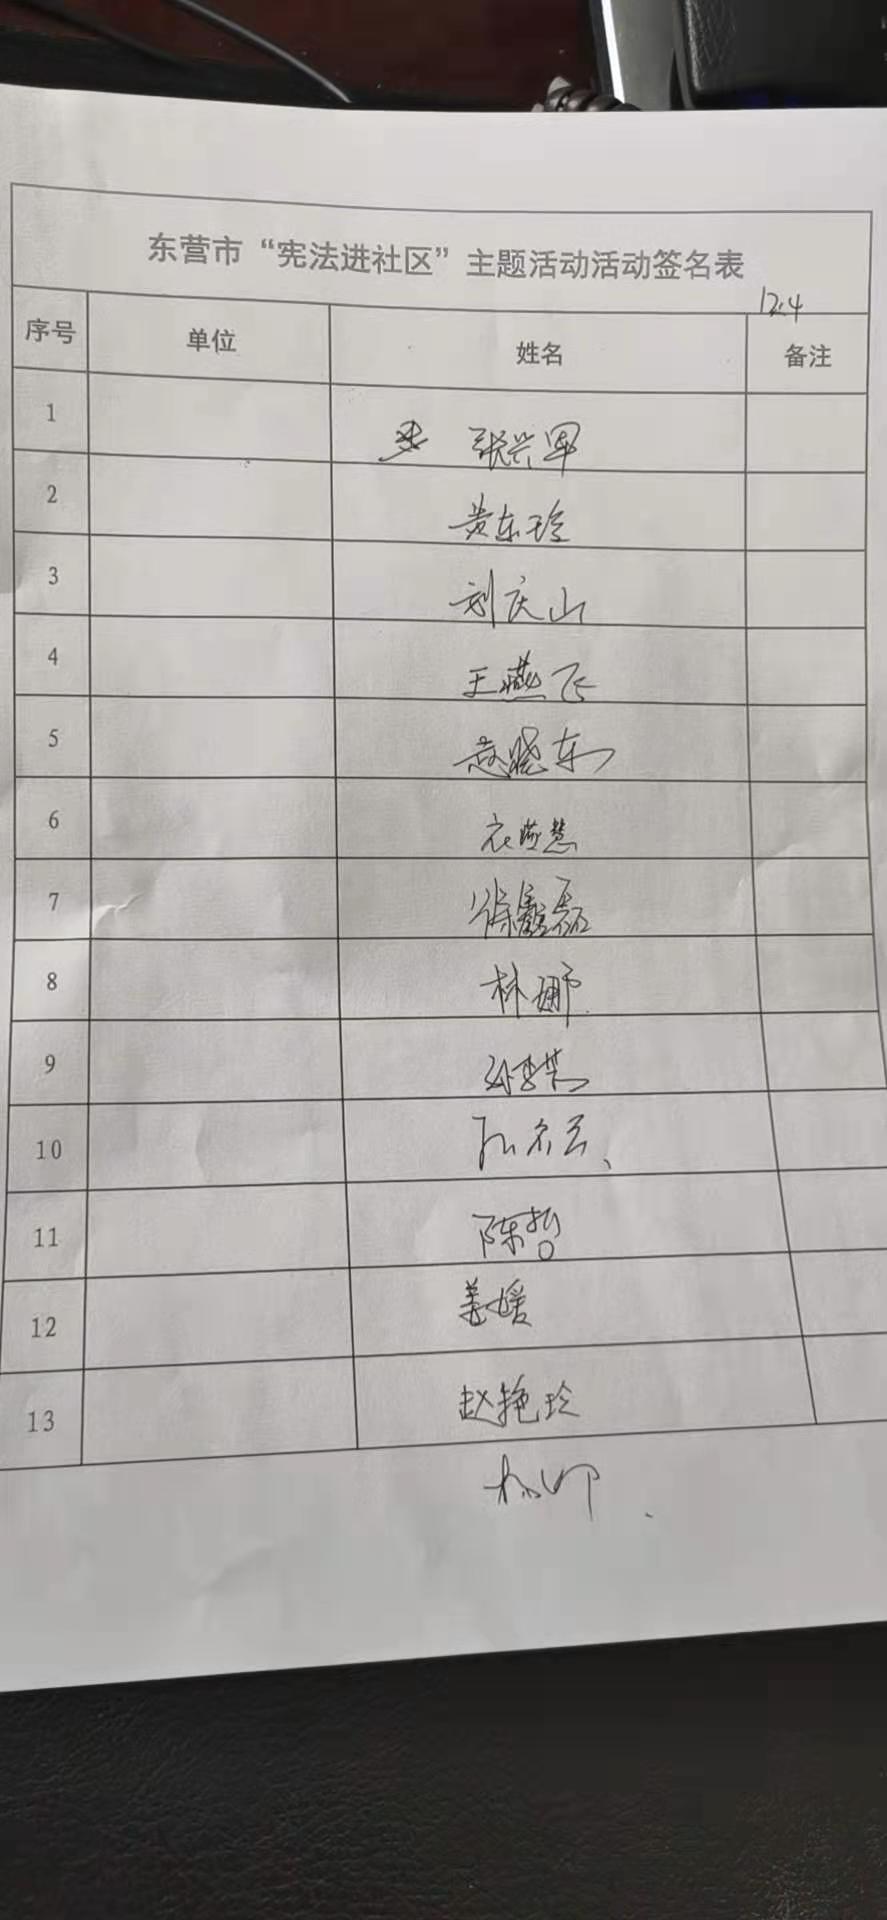 东营市“宪法进社区”主题活动活动签名表
12.4
序号 单位 姓名 备注
1 张兴军
2 黄东玲
3 刘庆山
4 王燕飞
5 赵晓东
6 衣燕慧
7 徐鑫磊
8 林娜
9
10
11 陈哲
12 姜媛
13 赵艳玲